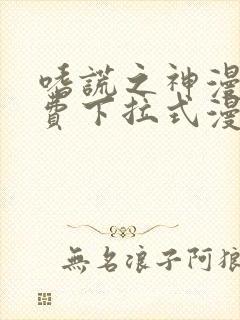 嗜謊之神漫
費下拉式漫
無名浪子阿狼